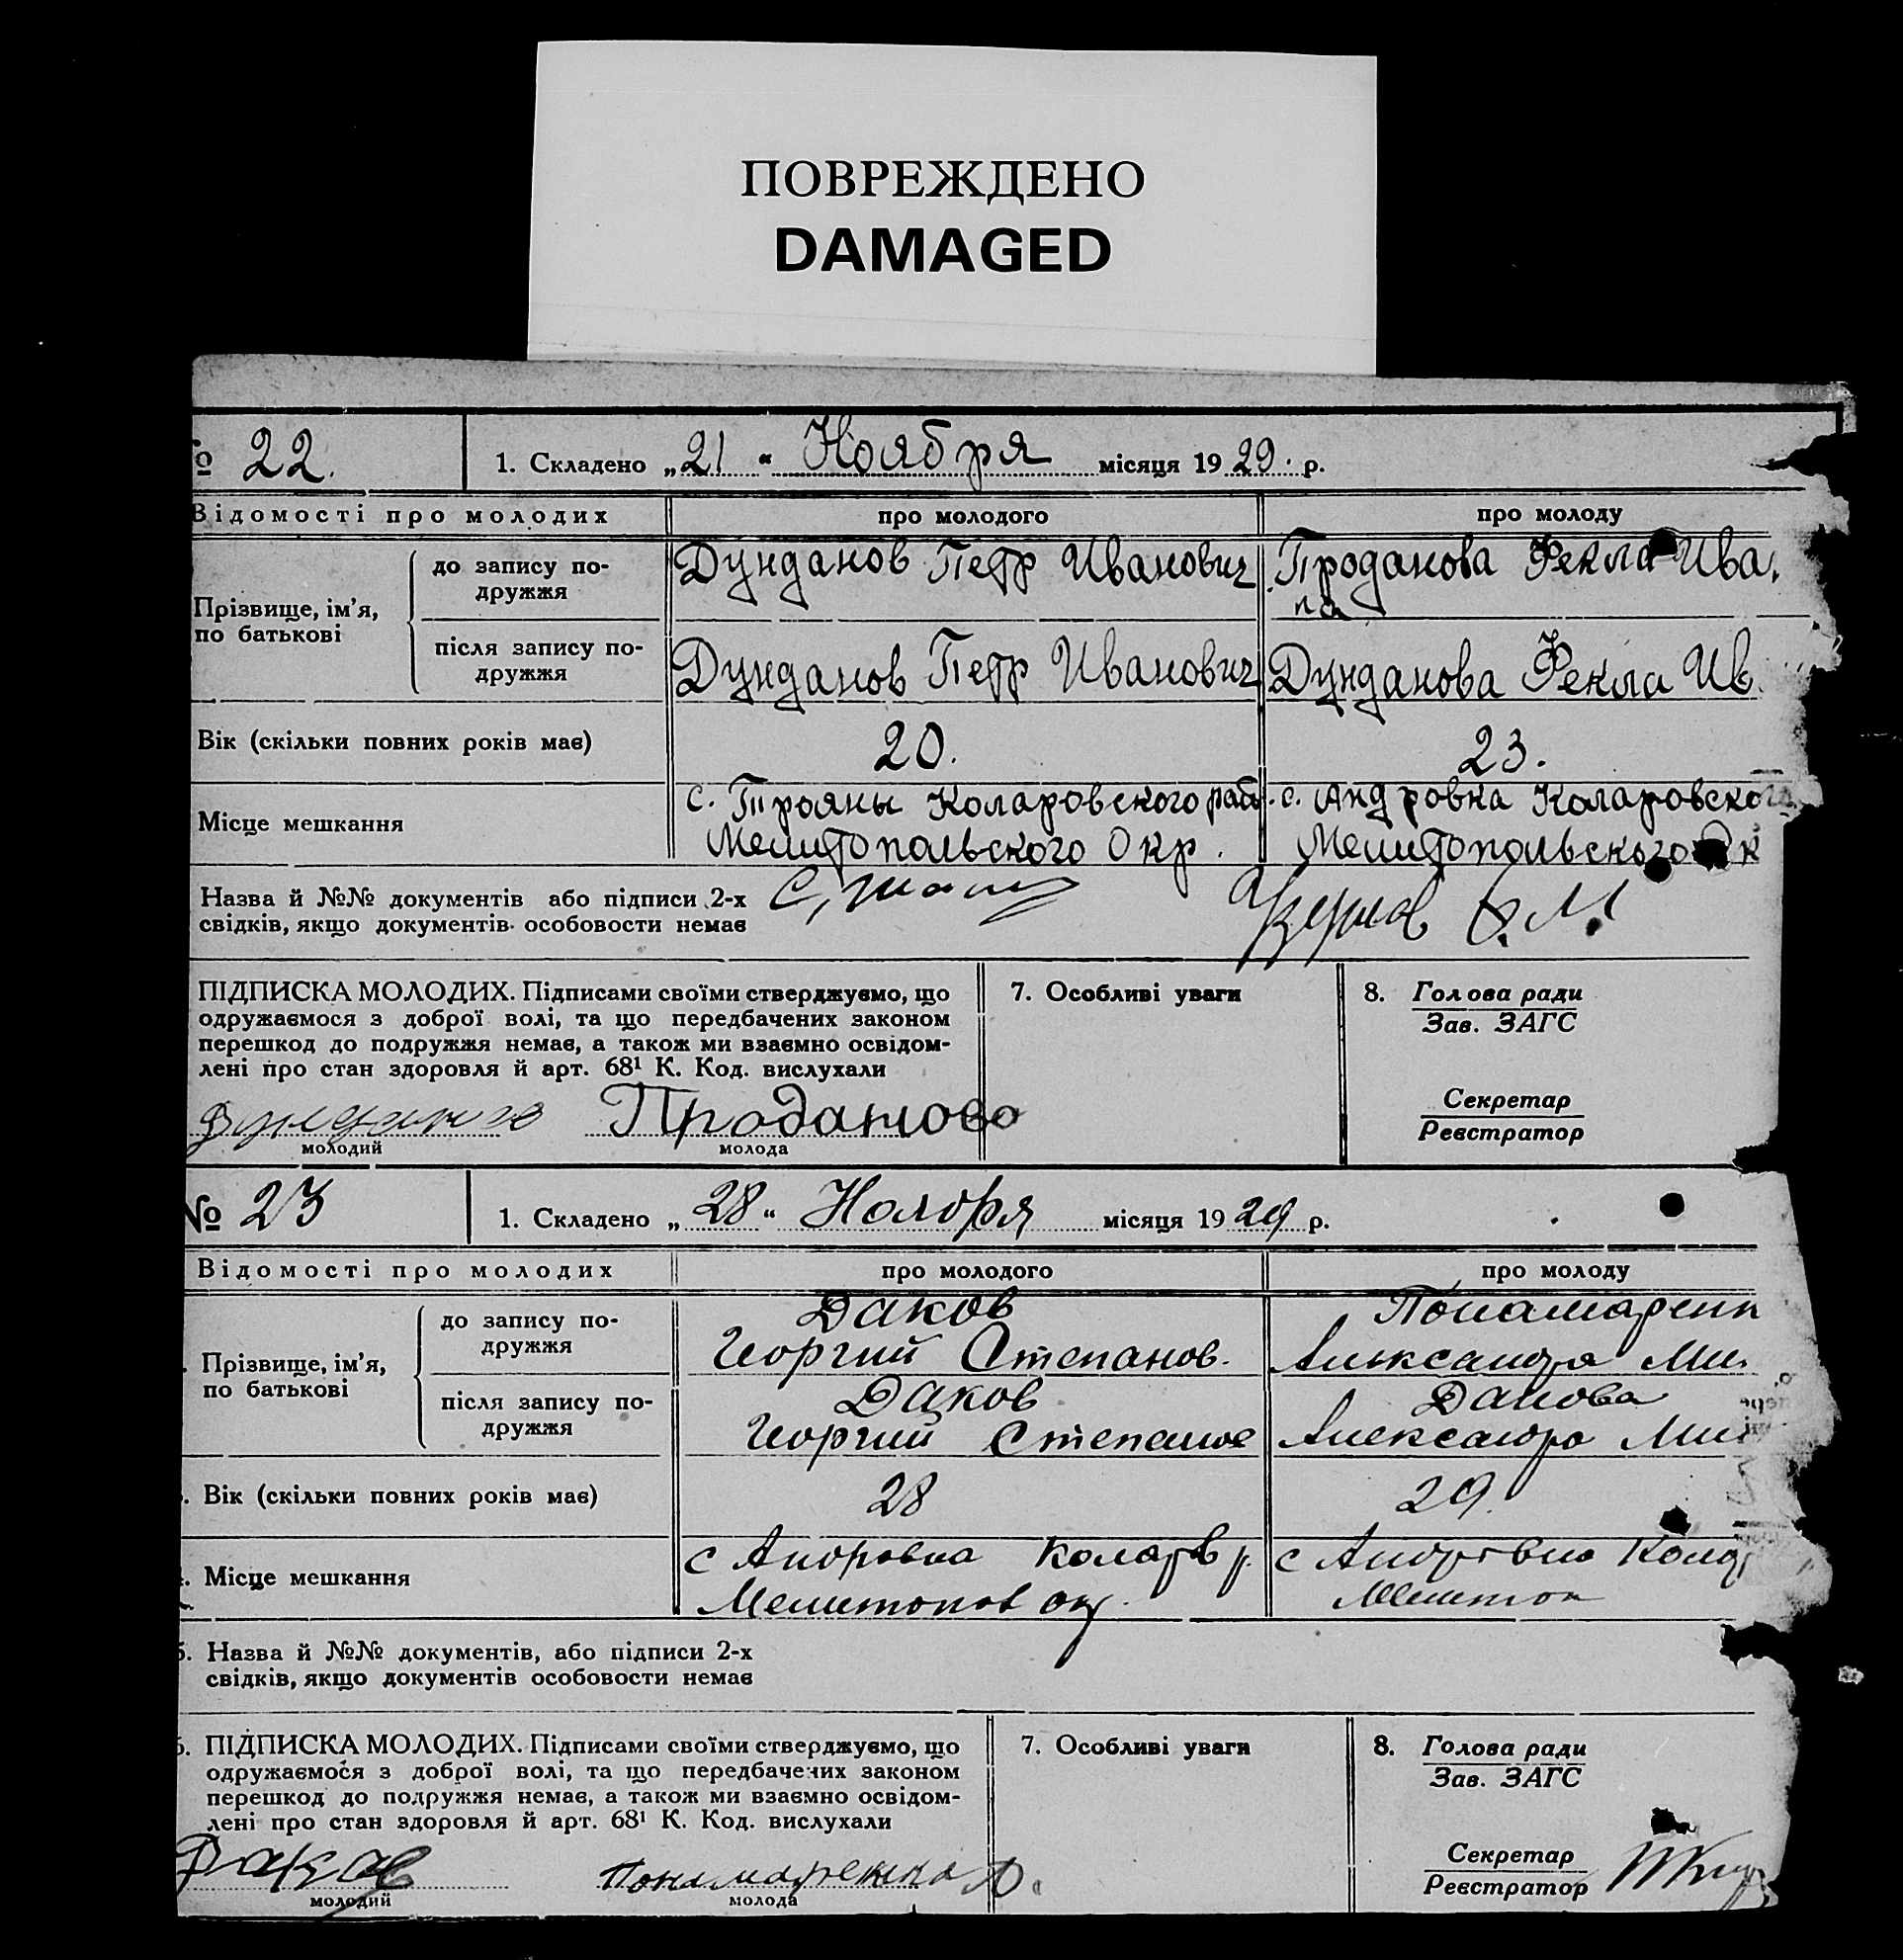 ПОВРЕЖДЕНО
DAMAGED
№ 22. 1. Складено „21" Ноября місяця 1929. р.
Відомості про молодих про молодого про молоду
Прізвище, ім'я, по батькові
до запису по-
дружжя
Дунданов Петр Иванович Проданова Фекла Ива.
на
після запису по-
дружжя
Дунданов Петр Иванович Дунданова Фекла Ив.
Вік (скільки повних років має) 20. 23.
Місце мешкання
с. Трояны Коларовского рай. с. Андровка Коларовского
Мелитопольского Окр. Мелитопольского Ок
Назва й №№ документів або підписи 2-х
свідків, якщо документів особовости немає
ПІДПИСКА МОЛОДИХ. Підписами своїми стверджуємо, що
одружаємося з доброї волі, та що передбачених законом
перешкод до подружжя немає, а також ми взаємно освідом-
лені про стан здоровля й арт. 68¹ К. Код. вислухали
Дунданов Проданово
молодий молода
7. Особливі уваги
8. Голова ради
Зав. ЗАГС
Секретар
Реєстратор
№ 23 1. Складено „28" Ноября місяця 1929 р.
Відомості про молодих про молодого про молоду
Прізвище, ім'я,
по батькові
до запису по-
дружжя
Даков Понамаренк
Георгий Степанов. Александра Ми
після запису по-
дружжя
Даков Дакова
Георгий Степанов Александра Ми
. Вік (скільки повних років має) 28 29.
. Місце мешкання
с Андровка Коларов р. с Андровка Кола
Мелитопов окр. Мелитоп
5. Назва й №№ документів, або підписи 2-х
свідків, якщо документів особовости немає
6. ПІДПИСКА МОЛОДИХ. Підписами своїми стверджуємо, що
одружаємося з доброї волі, та що передбачених законом
перешкод до подружжя немає, а також ми взаємно освідом-
лені про стан здоровля й арт. 68¹ К. Код. вислухали
Даков Понамаренка А.
молодий молода
7. Особливі уваги
8. Голова ради
Зав. ЗАГС
Секретар
Реєстратор